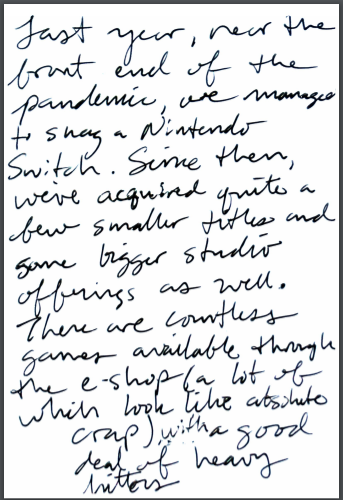 Last year, near the
front end of the
pandemic, we managed
to snag a Nintendo
Switch. Since then,
we've acquired quite a
few smaller titles and
some bigger studio
offerings as well.
There are countless
games available through
the e-shop (a lot of
which look like absolute
crap) with a good
deal of heavy
hitters